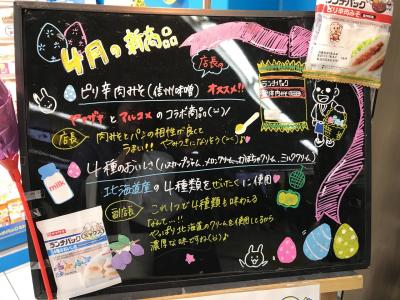 4月の新商品
店長の
ピリ辛肉みそ(信州味噌) オススメ!!
ヤマザキとマルコメのコラボ商品(^^)/
店長 肉みそとパンの相性が良くて
うまい!! やみつきになりそう(^^)♪
4種のおいしさ(ハスカップジャム、メロンクリーム、かぼちゃクリーム、ミルククリーム)
北海道産の4種類をぜいたくに使用
副店長 これ1つで4種類を味わえる
なんて…!!
やっぱり北海道のクリームを使用してるから
濃厚な味ですね(^^)♪
ランチパック
ピリ辛肉みそ
ランチパック
milk
ランチパック